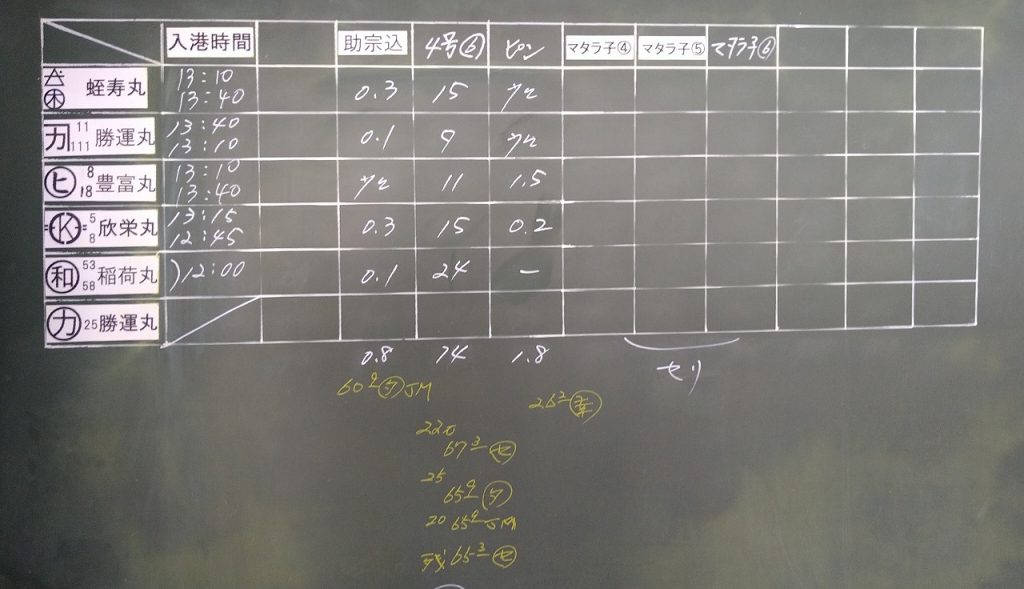 入港時間 助宗込 4号⑥ ピン マタラ子④ マタラ子⑤ マタラ子⑥
木 蛭寿丸 13:10 13:40 0.3 15
カ 11 111 勝運丸 13:40 13:10 0.1 9
ヒ 8 18 豊富丸 13:10 13:40 11 1.5
K 5 8 欣栄丸 13:15 12:45 0.3 15 0.2
和 53 58 稲荷丸 12:00 0.1 24 —
カ 25 勝運丸
0.8 74 1.8
セリ
JM
220
67³ セ
25
20 JM
残 65³ セ